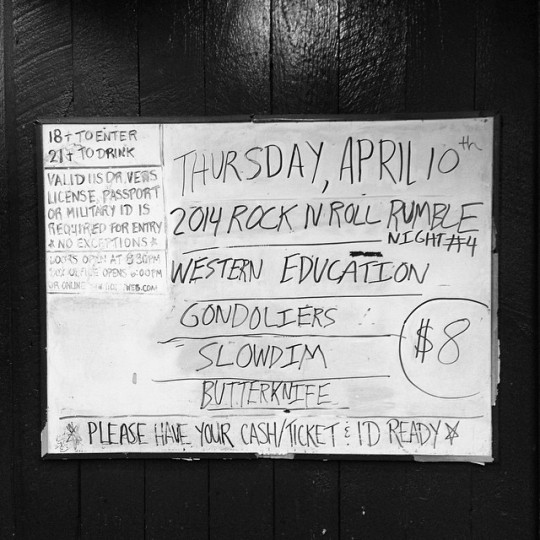 18+ TO ENTER
21+ TO DRINK
VALID US DRIVERS
LICENSE, PASSPORT
OR MILITARY ID IS
REQUIRED FOR ENTRY
* NO EXCEPTIONS *
DOORS OPEN AT 8:30PM
OPENS 6:00PM
OR ONLINE
WEB.COM
THURSDAY, APRIL 10th
2014 ROCK N ROLL RUMBLE
NIGHT #4
WESTERN EDUCATION
GONDOLIERS
SLOWDIM
BUTTERKNIFE
$8
PLEASE HAVE YOUR CASH/TICKET & ID READY